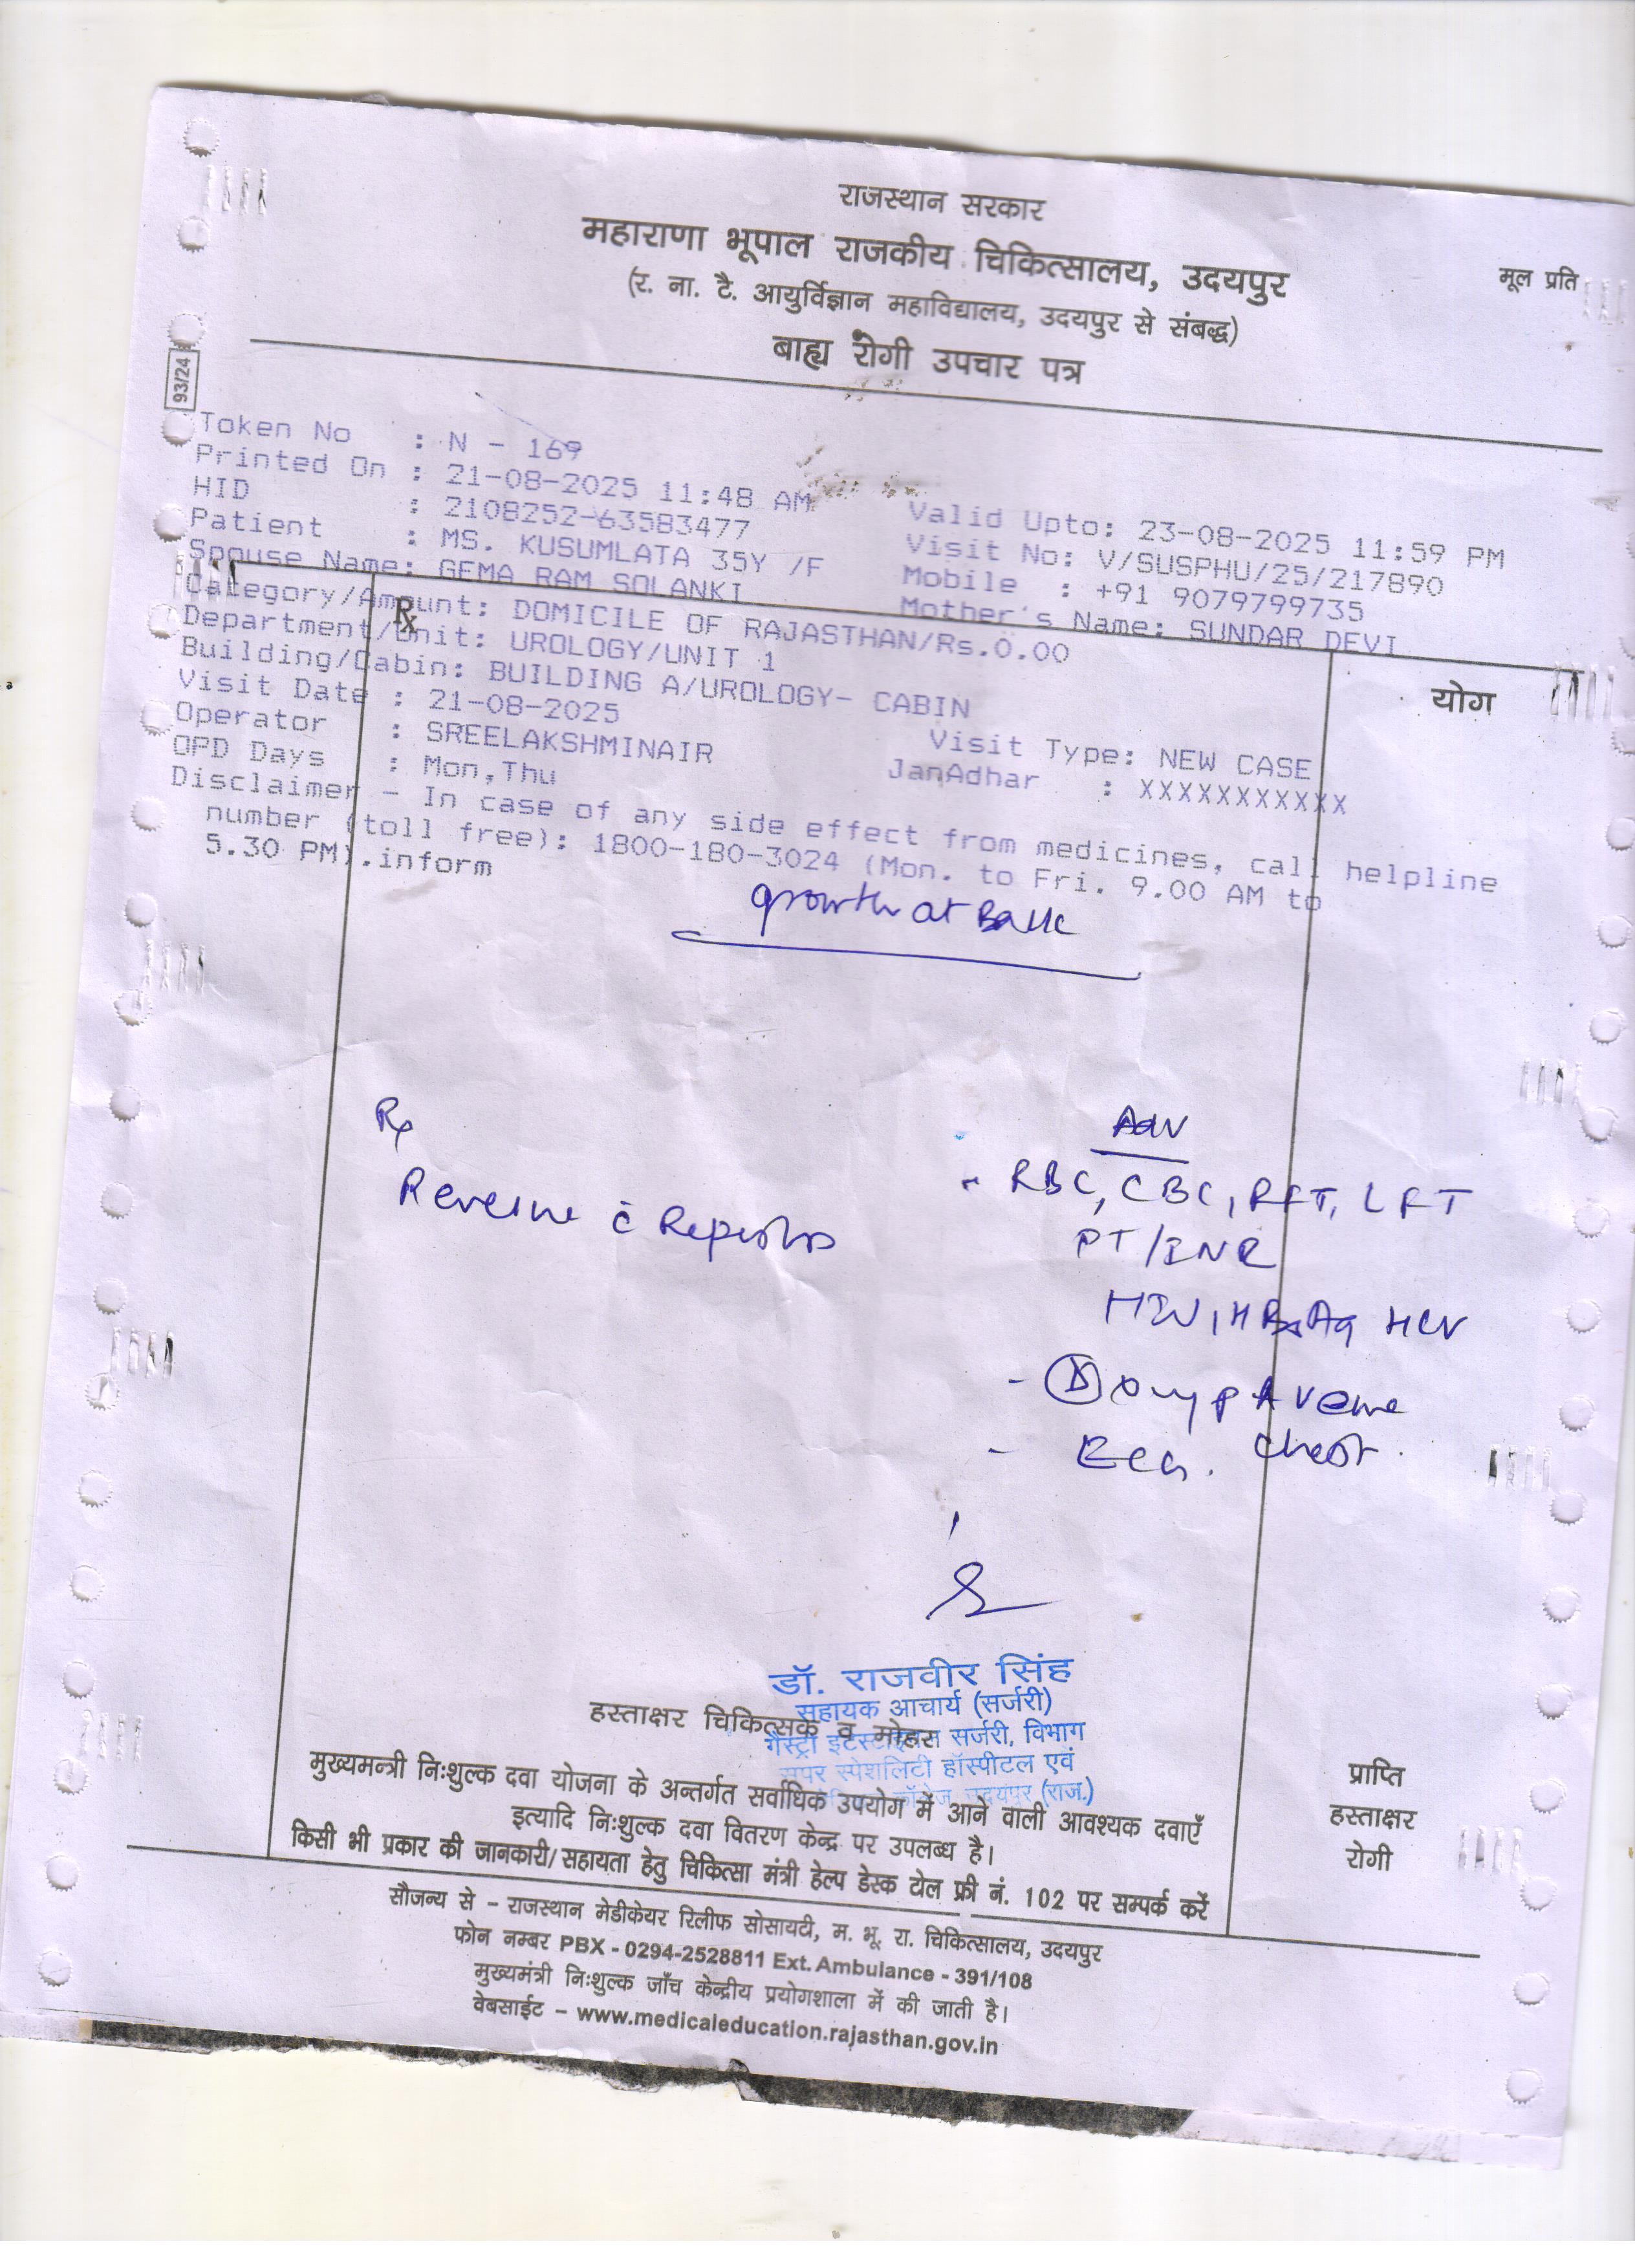 राजस्थान सरकार
महाराणा भूपाल राजकीय चिकित्सालय, उदयपुर
मूल प्रति
(र. ना. टै. आयुर्विज्ञान महाविद्यालय, उदयपुर से संबद्ध)
बाह्य रोगी उपचार पत्र
93/24
Token No : N - 169
Printed On : 21-08-2025 11:48 AM Valid Upto: 23-08-2025 11:59 PM
HID : 2108252-63583477 Visit No: V/SUSPHU/25/217890
Patient : MS. KUSUMLATA 35Y /F Mobile : +91 9079799735
Spouse Name: GEMA RAM SOLANKI Mother's Name: SUNDAR DEVI
Category/Amount: DOMICILE OF RAJASTHAN/Rs.0.00
Department/Unit: UROLOGY/UNIT 1
Building/Cabin: BUILDING A/UROLOGY- CABIN
Visit Date : 21-08-2025 Visit Type: NEW CASE
Operator : SREELAKSHMINAIR JanAdhar : XXXXXXXXXXX
OPD Days : Mon,Thu
Disclaimer - In case of any side effect from medicines, call helpline
number (toll free): 1800-180-3024 (Mon. to Fri. 9.00 AM to
5.30 PM).inform
Rx
योग
growth at Back
Rx
Adv
- RBC, CBC, RFT, LFT
PT/INR
HIV, HBsAg HCV
Reports
- ECG. Chest.
डॉ. राजवीर सिंह
सहायक आचार्य (सर्जरी)
हस्ताक्षर चिकित्सक व मोहर
सर्जरी, विभाग
सुपर स्पेशलिटी हॉस्पीटल एवं
कॉलेज, उदयपुर (राज.)
मुख्यमन्त्री निःशुल्क दवा योजना के अन्तर्गत सर्वाधिक उपयोग में आने वाली आवश्यक दवाएँ
इत्यादि निःशुल्क दवा वितरण केन्द्र पर उपलब्ध है।
किसी भी प्रकार की जानकारी/सहायता हेतु चिकित्सा मंत्री हेल्प डेस्क टोल फ्री नं. 102 पर सम्पर्क करें
प्राप्ति
हस्ताक्षर
रोगी
सौजन्य से - राजस्थान मेडीकेयर रिलीफ सोसायटी, म. भू. रा. चिकित्सालय, उदयपुर
फोन नम्बर PBX - 0294-2528811 Ext. Ambulance - 391/108
मुख्यमंत्री निःशुल्क जाँच केन्द्रीय प्रयोगशाला में की जाती है।
वेबसाईट - www.medicaleducation.rajasthan.gov.in